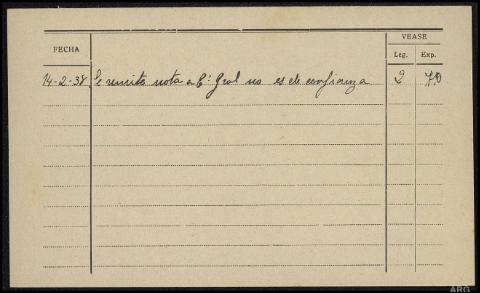 VEASE
FECHA
Leg. Exp.
14-2-38 Se remite nota a Cª Gral no es de confianza 2 70
ARG